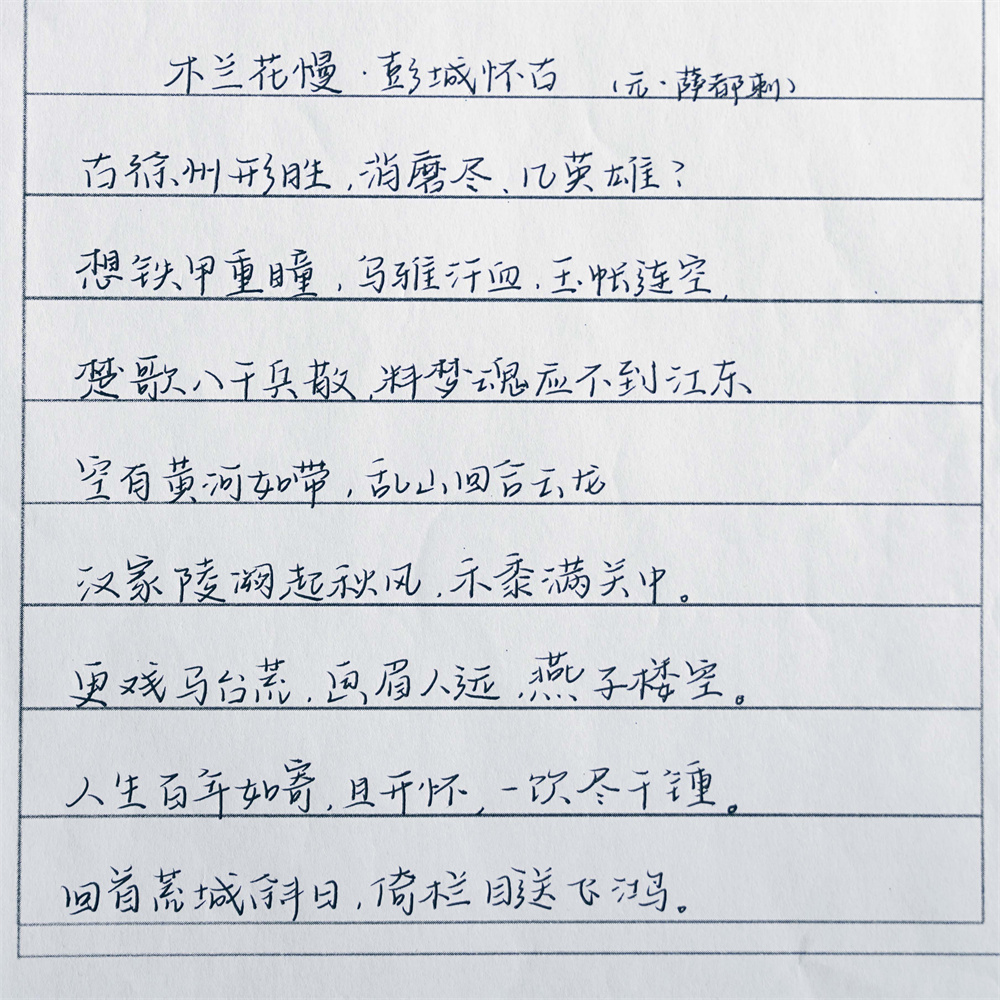 木兰花慢·彭城怀古 (元·萨都剌)
古徐州形胜,消磨尽、几英雄?
想铁甲重瞳,乌骓汗血,玉帐连空,
楚歌八千兵散,料梦魂应不到江东
空有黄河如带,乱山回合云龙
汉家陵阙起秋风,禾黍满关中。
更戏马台荒,画眉人远,燕子楼空。
人生百年如寄,且开怀,一饮尽千锺。
回首荒城斜日,倚栏目送飞鸿。